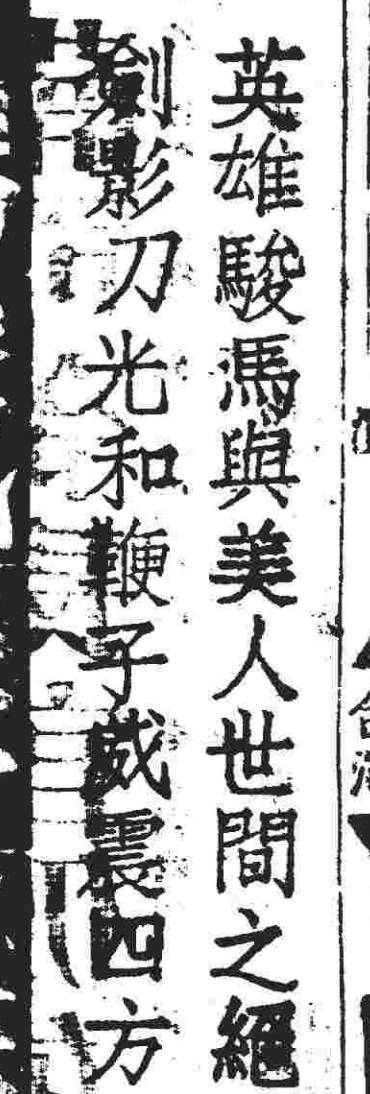 英雄駿馬與美人世間之絕
劍影刀光和鞭子威震四方